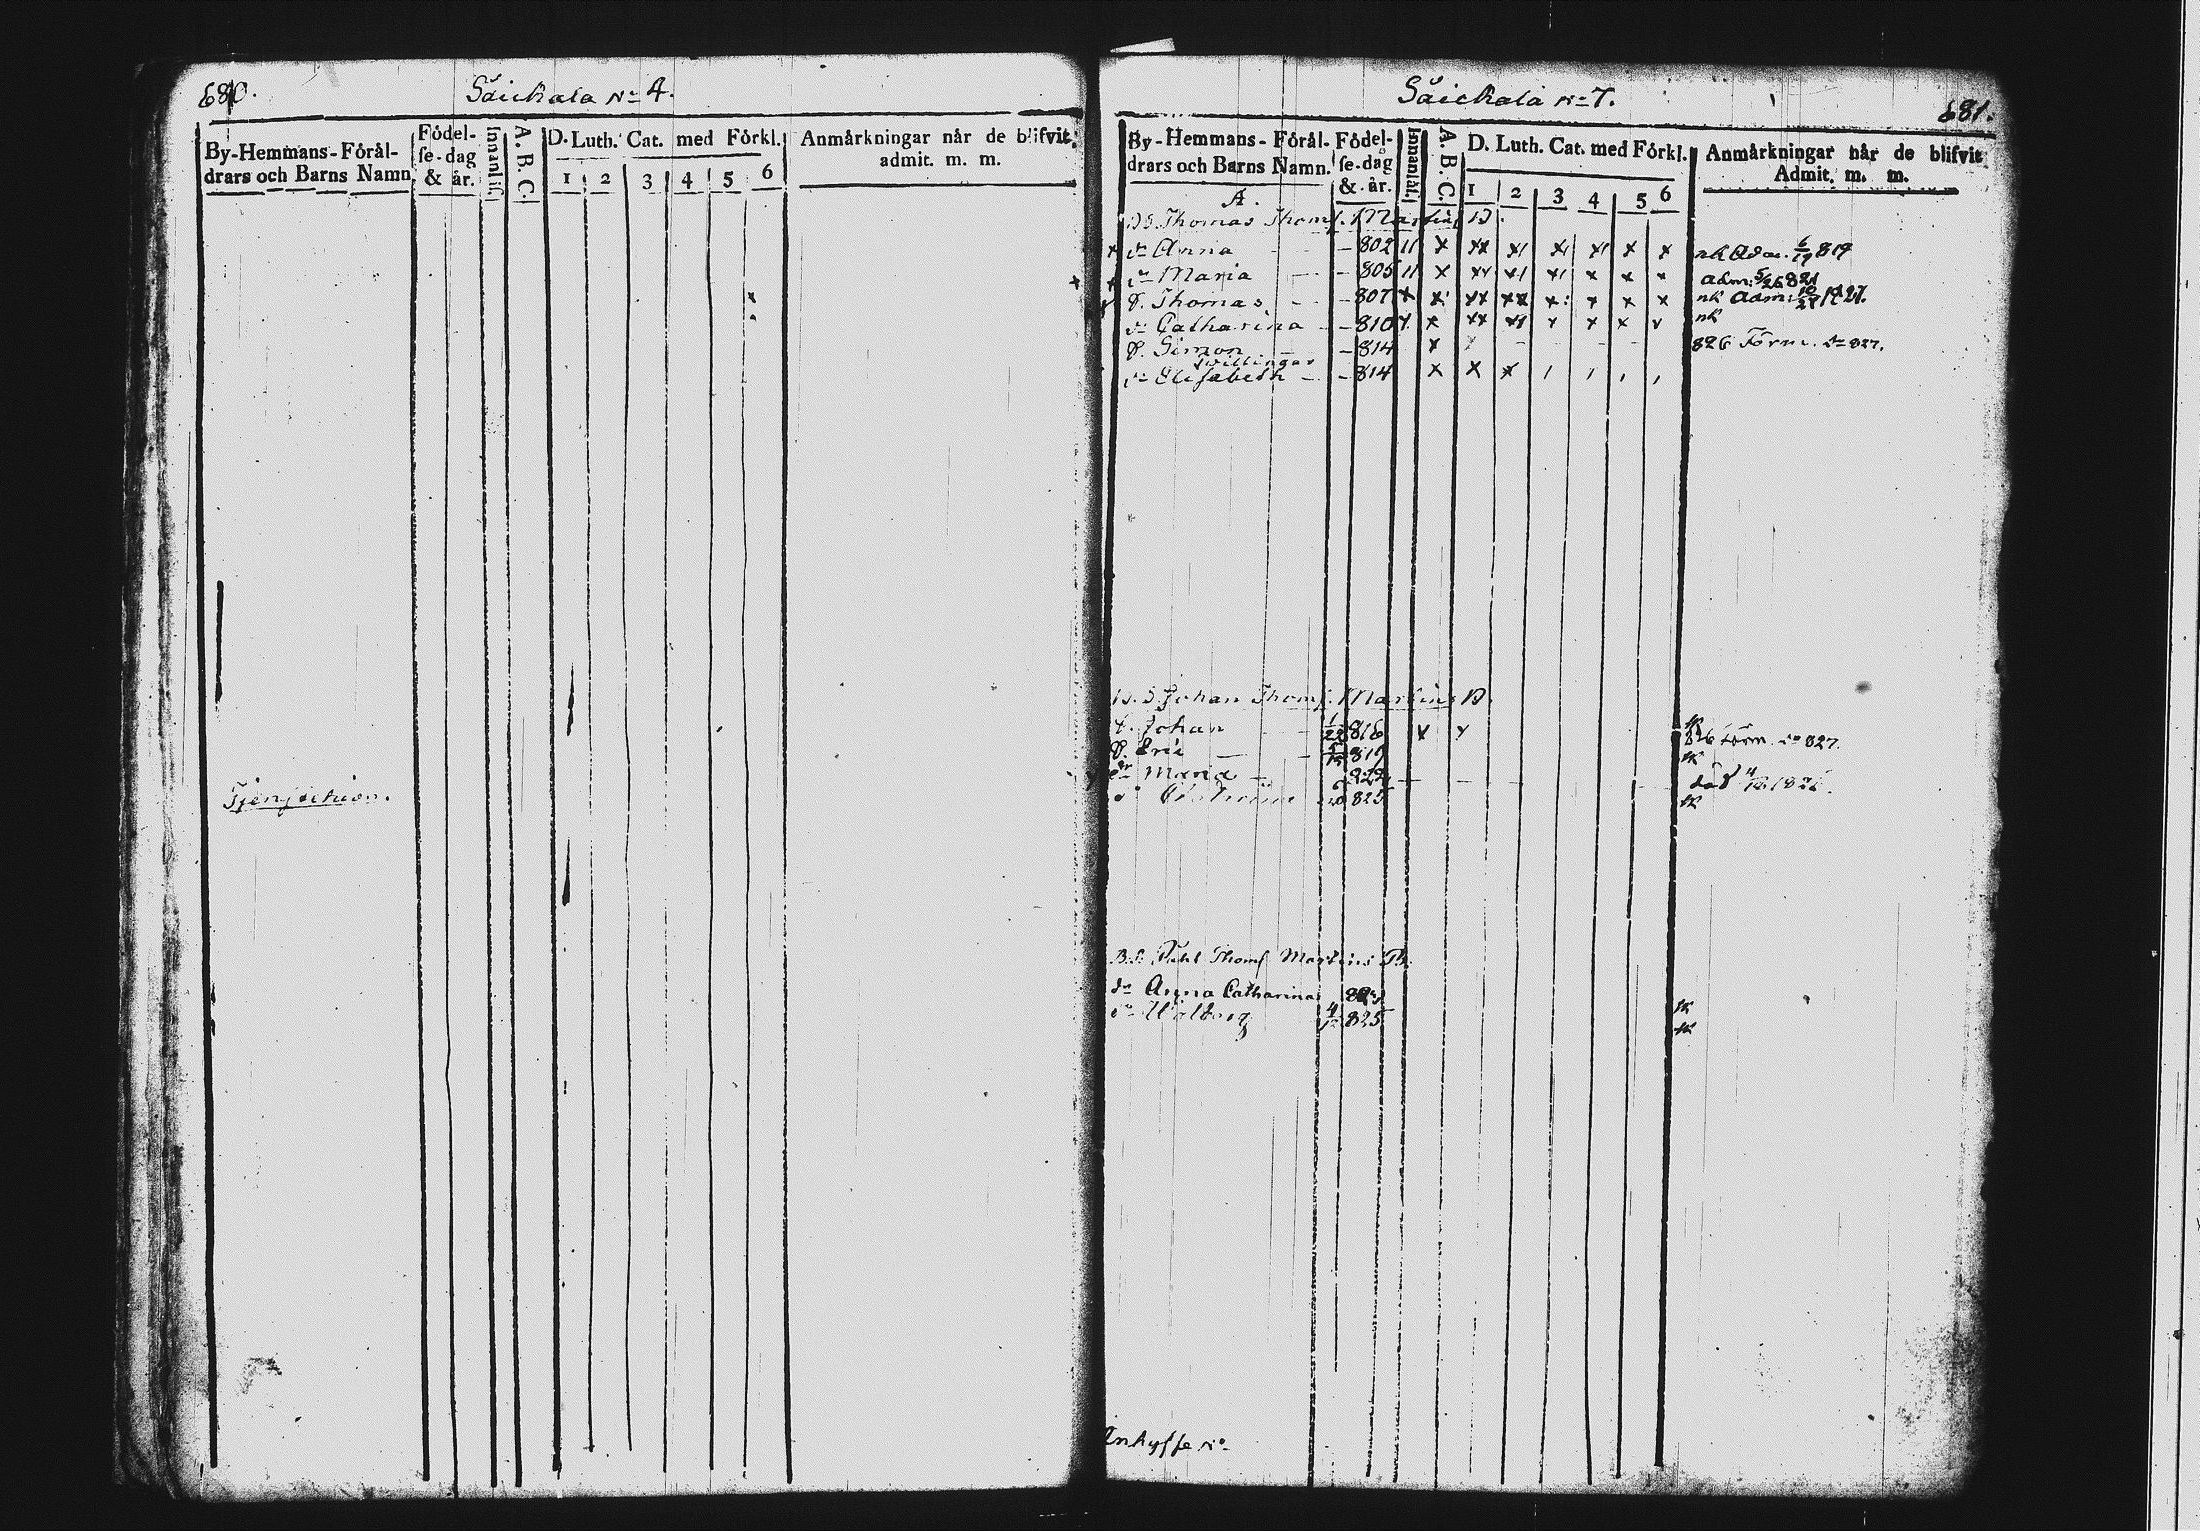 680.
Säickala No 4.
By-Hemmans-Föräl-
drars och Barns Namn.
Födel-
se-dag
& år.
Innanläs.
A. B. C.
D. Luth. Cat. med Förkl.
1 2 3 4 5 6
Anmärkningar när de blifvit
admit. m. m.
Säickala No 7.
681.
By-Hemmans-Föräl-
drars och Barns Namn.
Födel-
se-dag
& år.
Innanläs.
A. B. C.
D. Luth. Cat. med Förkl.
1 2 3 4 5 6
Anmärkningar när de blifvit
Admit. m. m.
A.
Thomas Thoms. Martins B.
dr Anna — 802 11 x xx x1 x1 x1 x x nk Adm. 6/19 819
dr Maria — 805 11 x xx x1 x1 x x x adm: 821
S. Thomas — 807 x x xx xx x x x x nk Adm: 1827.
dr Catharina — 810 x x xx x1 x x x x nk
S. Simon — 814 x 826 Förm. do 827.
Tvillingar
dr Elisabeth — 814 x x x
B. S Johan Thoms. Martins B.
S. Johan 818 x x 826 förm. do 827.
S. Eric 819
dr Maria 822 död 1826.
825
B. S. Thoms Martins B.
dr Anna Catharina
dr Walborg 825
Inhysse No